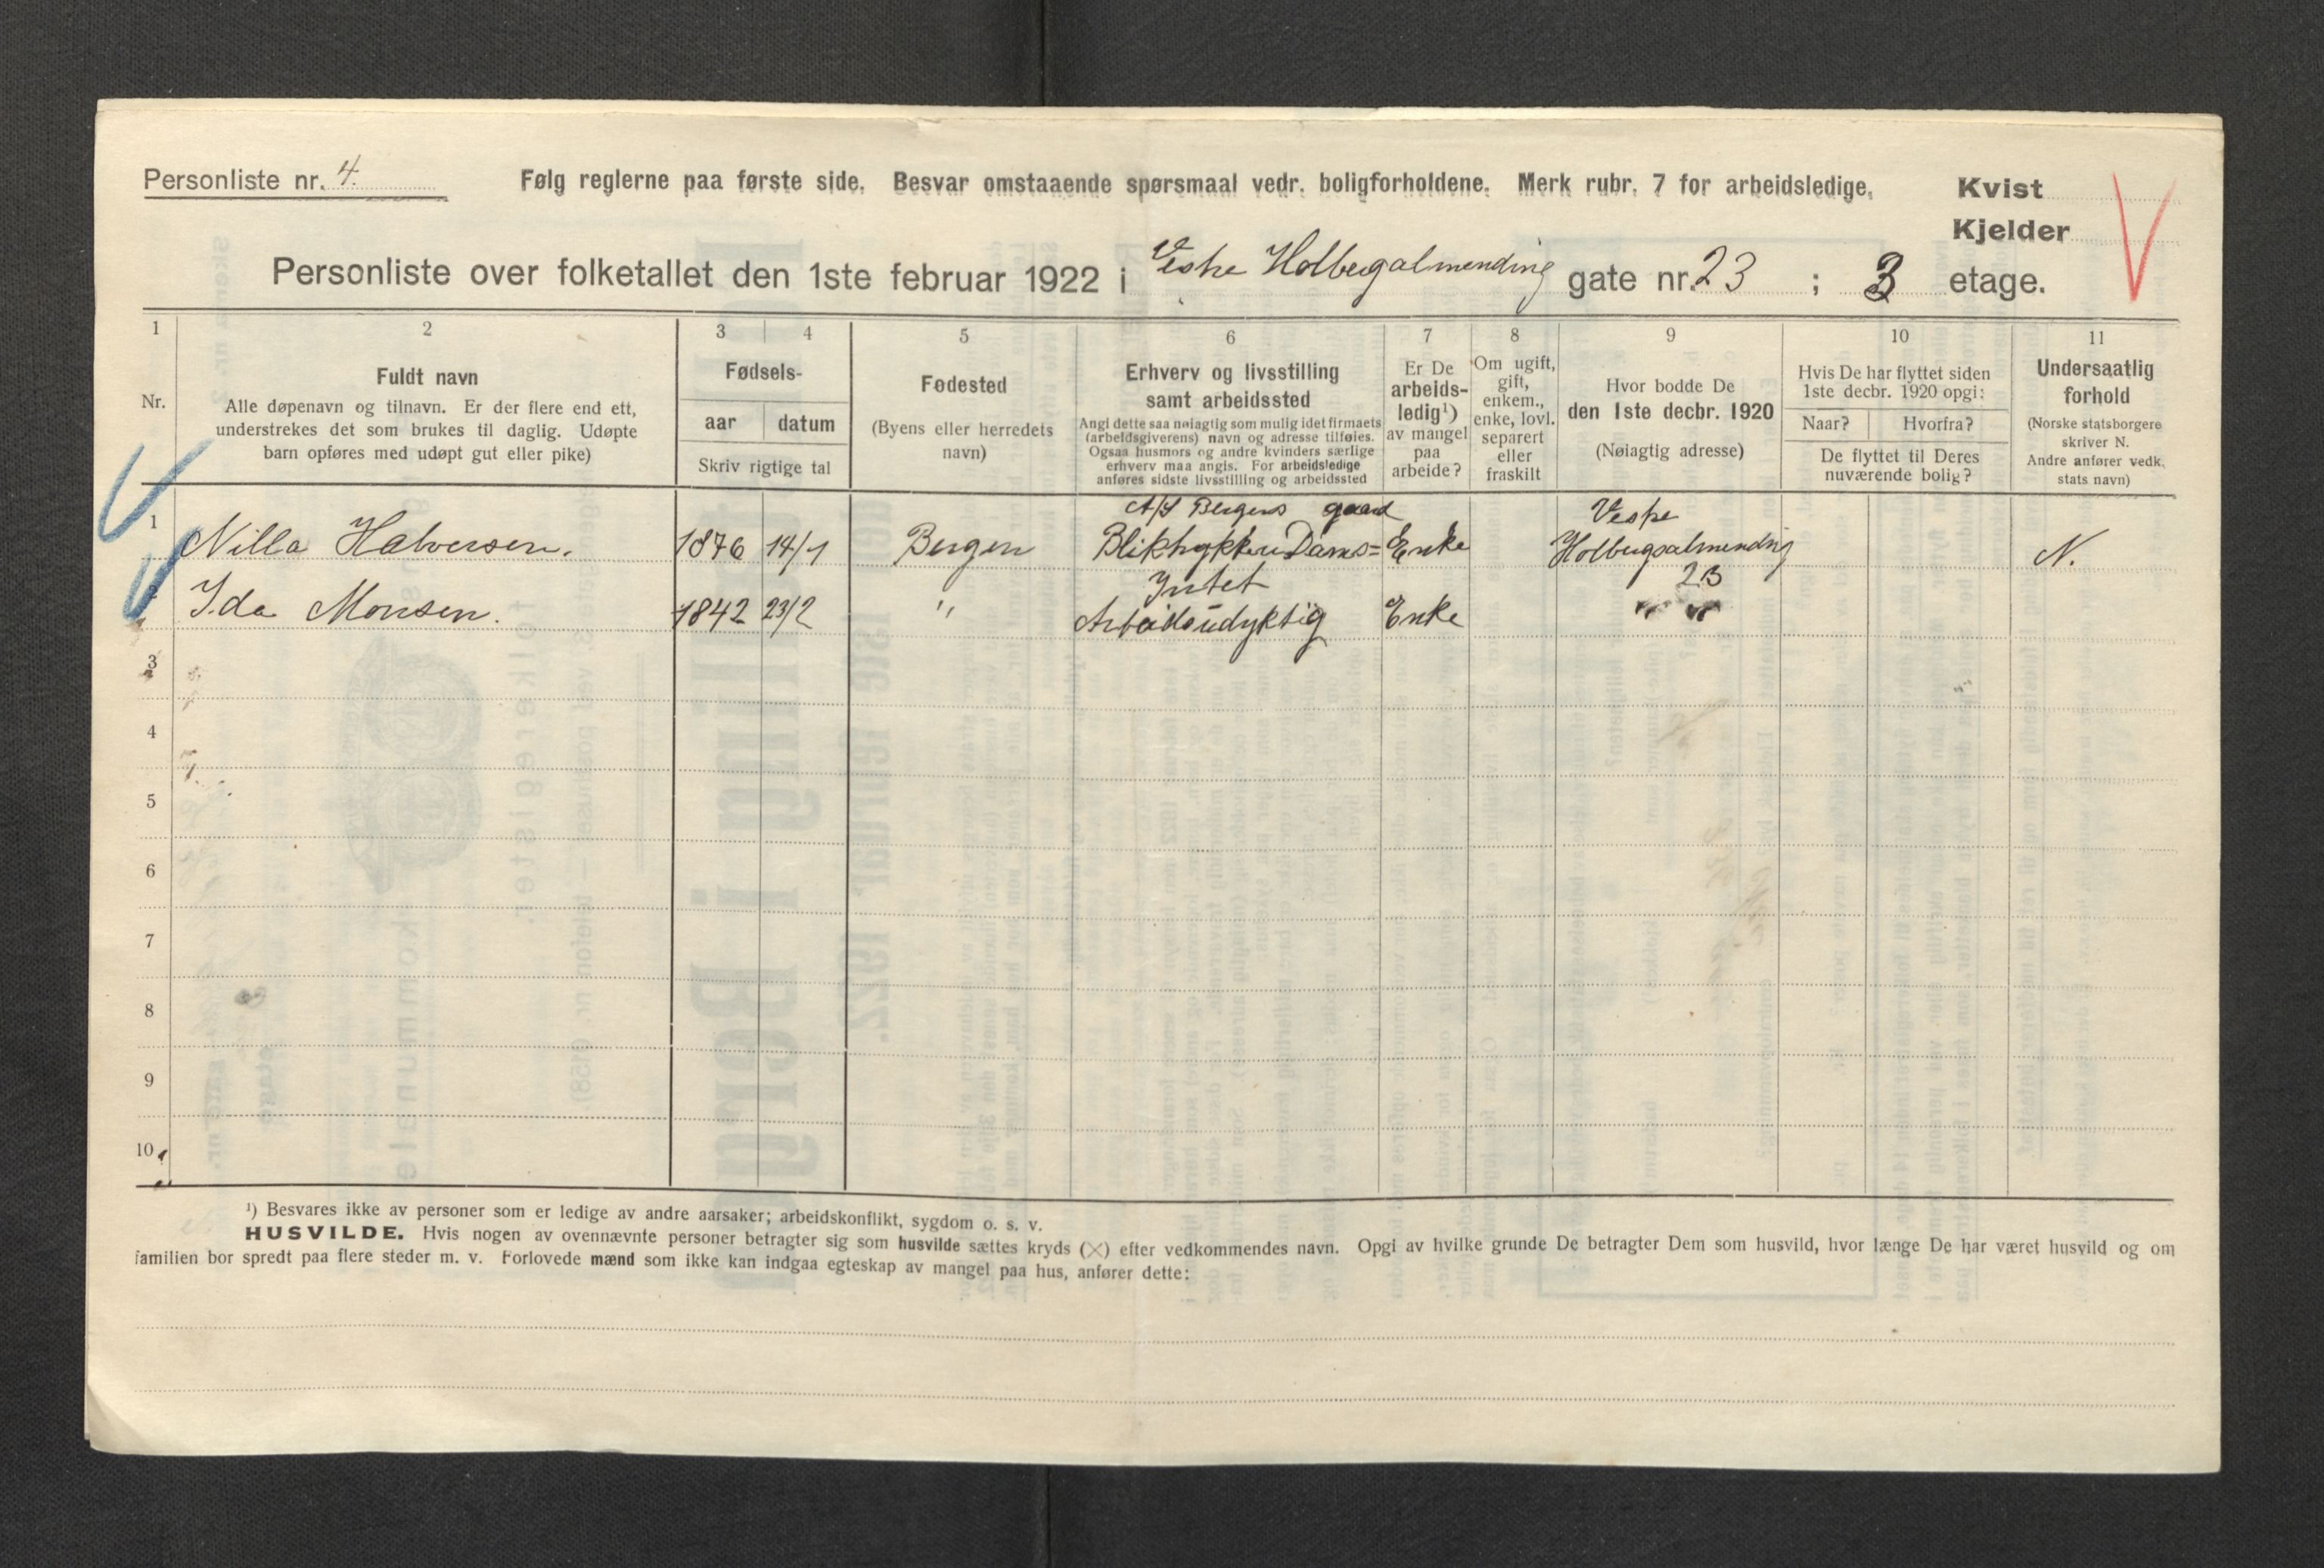 Personliste nr. 4.
Følg reglerne paa første side. Besvar omstaaende spørsmaal vedr. boligforholdene. Merk rubr. 7 for arbeidsledige.
Kvist
Kjelder
Personliste over folketallet den 1ste februar 1922 i Vestre Holbergalmending gate nr. 23 ; 3 etage.
1 2 3 4 5 6 7 8 9 10 11
Nr.
Fuldt navn
Alle døpenavn og tilnavn. Er der flere end ett,
understrekes det som brukes til daglig. Udøpte
barn opføres med udøpt gut eller pike)
Fødsels-
aar datum
Skriv rigtige tal
Fødested
(Byens eller herredets
navn)
Erhverv og livsstilling
samt arbeidssted
Angi dette saa nøiagtig som mulig idet firmaets
(arbeidsgiverens) navn og adresse tilføies.
Ogsaa husmors og andre kvinders særlige
erhverv maa angis. For arbeidsledige
anføres sidste livsstilling og arbeidssted
Er De
arbeids-
ledig¹)
av mangel
paa
arbeide?
Om ugift,
gift,
enkem.,
enke, lovl.
separert
eller
fraskilt
Hvor bodde De
den 1ste decbr. 1920
(Nøiagtig adresse)
Hvis De har flyttet siden
1ste decbr. 1920 opgi:
Naar? Hvorfra?
De flyttet til Deres
nuværende bolig?
Undersaatlig
forhold
(Norske statsborgere
skriver N.
Andre anfører vedk.
stats navn)
A/S Bergens gaard Vestre
1 Nilla Halversen. 1876 14/1 Bergen Bliktrykkeri Dams= Enke Holbergsalmending N.
Intet 23
Ida Monsen. 1842 23/2 " Arbeidsudyktig Enke " "
3
4
5
6
7
8
9
10
¹) Besvares ikke av personer som er ledige av andre aarsaker; arbeidskonflikt, sygdom o. s. v.
HUSVILDE. Hvis nogen av ovennævnte personer betragter sig som husvilde sættes kryds (×) efter vedkommendes navn. Opgi av hvilke grunde De betragter Dem som husvild, hvor længe De har været husvild og om
familien bor spredt paa flere steder m. v. Forlovede mænd som ikke kan indgaa egteskap av mangel paa hus, anfører dette: